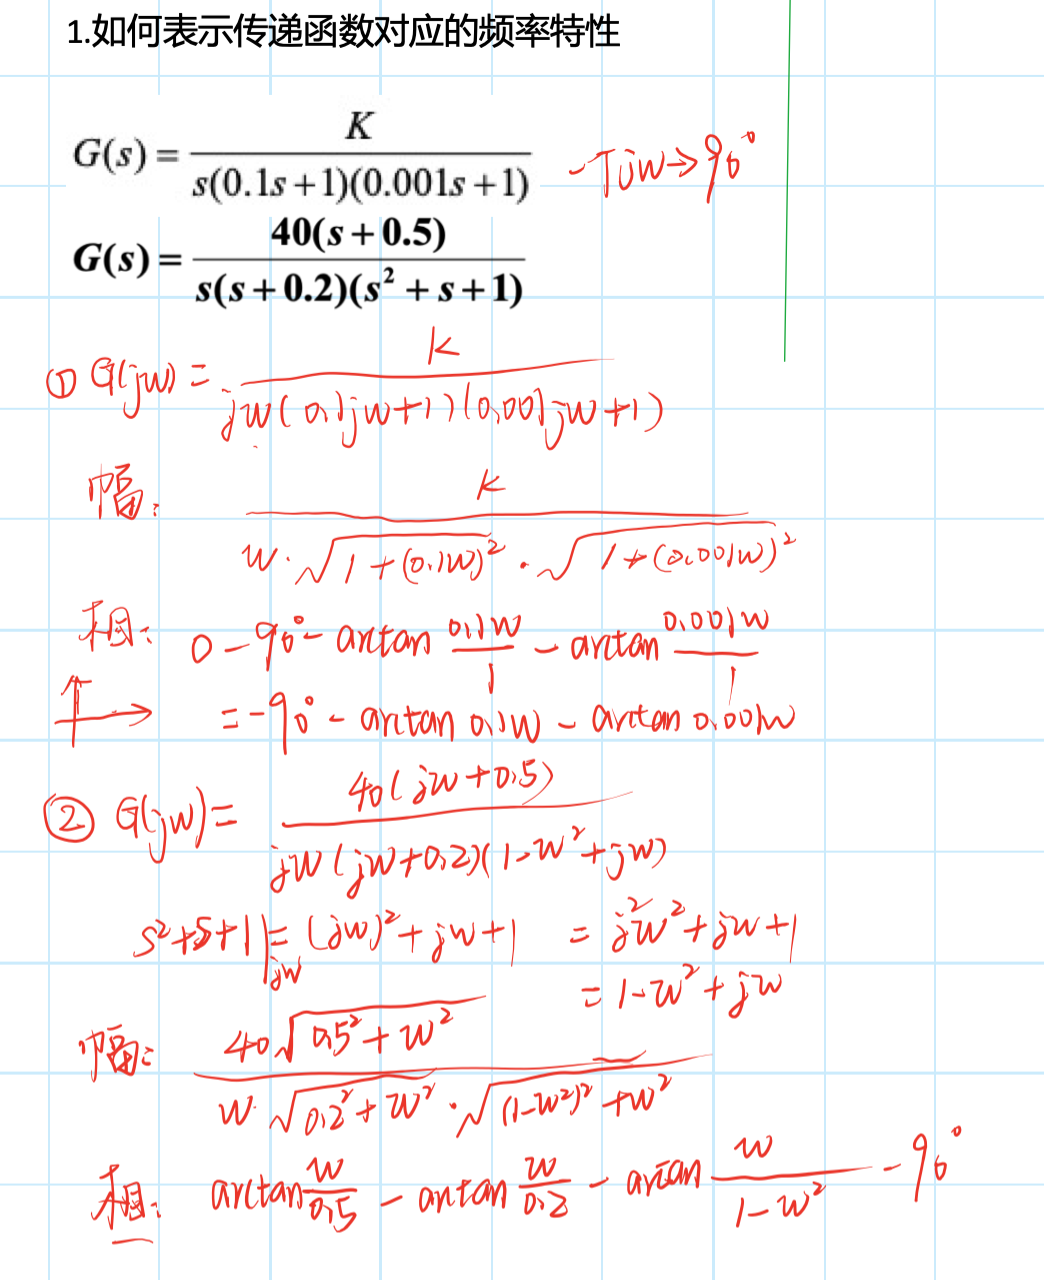 1.如何表示传递函数对应的频率特性
G(s) = K / s(0.1s+1)(0.001s+1) -Tjw→90°
G(s) = 40(s+0.5) / s(s+0.2)(s²+s+1)
① G(jw) = K / jw(0.1jw+1)(0.001jw+1)
幅: K / w·√1+(0.1w)²·√1+(0.001w)²
相: 0-90°-arctan 0.1w/1 - arctan 0.001w/1
=-90°-arctan 0.1w - arctan 0.001w
② G(jw)= 40(jw+0.5) / jw(jw+0.2)(1-w²+jw)
s²+s+1|jw = (jw)²+jw+1 = j²w²+jw+1
= 1-w²+jw
幅: 40√0.5²+w² / w·√0.2²+w²·√(1-w²)²+w²
相: arctan w/0.5 - arctan w/0.2 - arctan w/1-w² - 90°